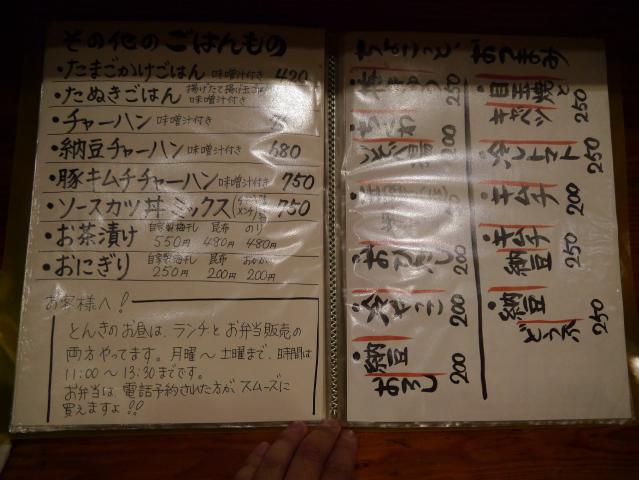 その他のごはんもの
・たまごかけごはん 味噌汁付き 420
・たぬきごはん 味噌汁付き
・チャーハン 味噌汁付き
・納豆チャーハン 味噌汁付き 680
・豚キムチチャーハン 味噌汁付き 750
・ソースカツ丼ミックス 750
・お茶漬け 自家製梅干し 550円 昆布 480円 のり 480円
・おにぎり 自家製梅干し 250円 昆布 200円 おかか 200円
お客様へ!
とんきのお昼は、ランチとお弁当販売の
両方やってます。月曜〜土曜まで、時間は
11:00〜13:30までです。
お弁当は、電話予約された方がスムーズに
買えますよ!!
ちょこっと、おつまみ
目玉焼と
キャベツ 250
・冷しトマト 250
・キムチ 200
・キムチ
納豆 250
・納豆
どうふ 250
250
200
200
・冷やっこ 200
・納豆
おろし 200